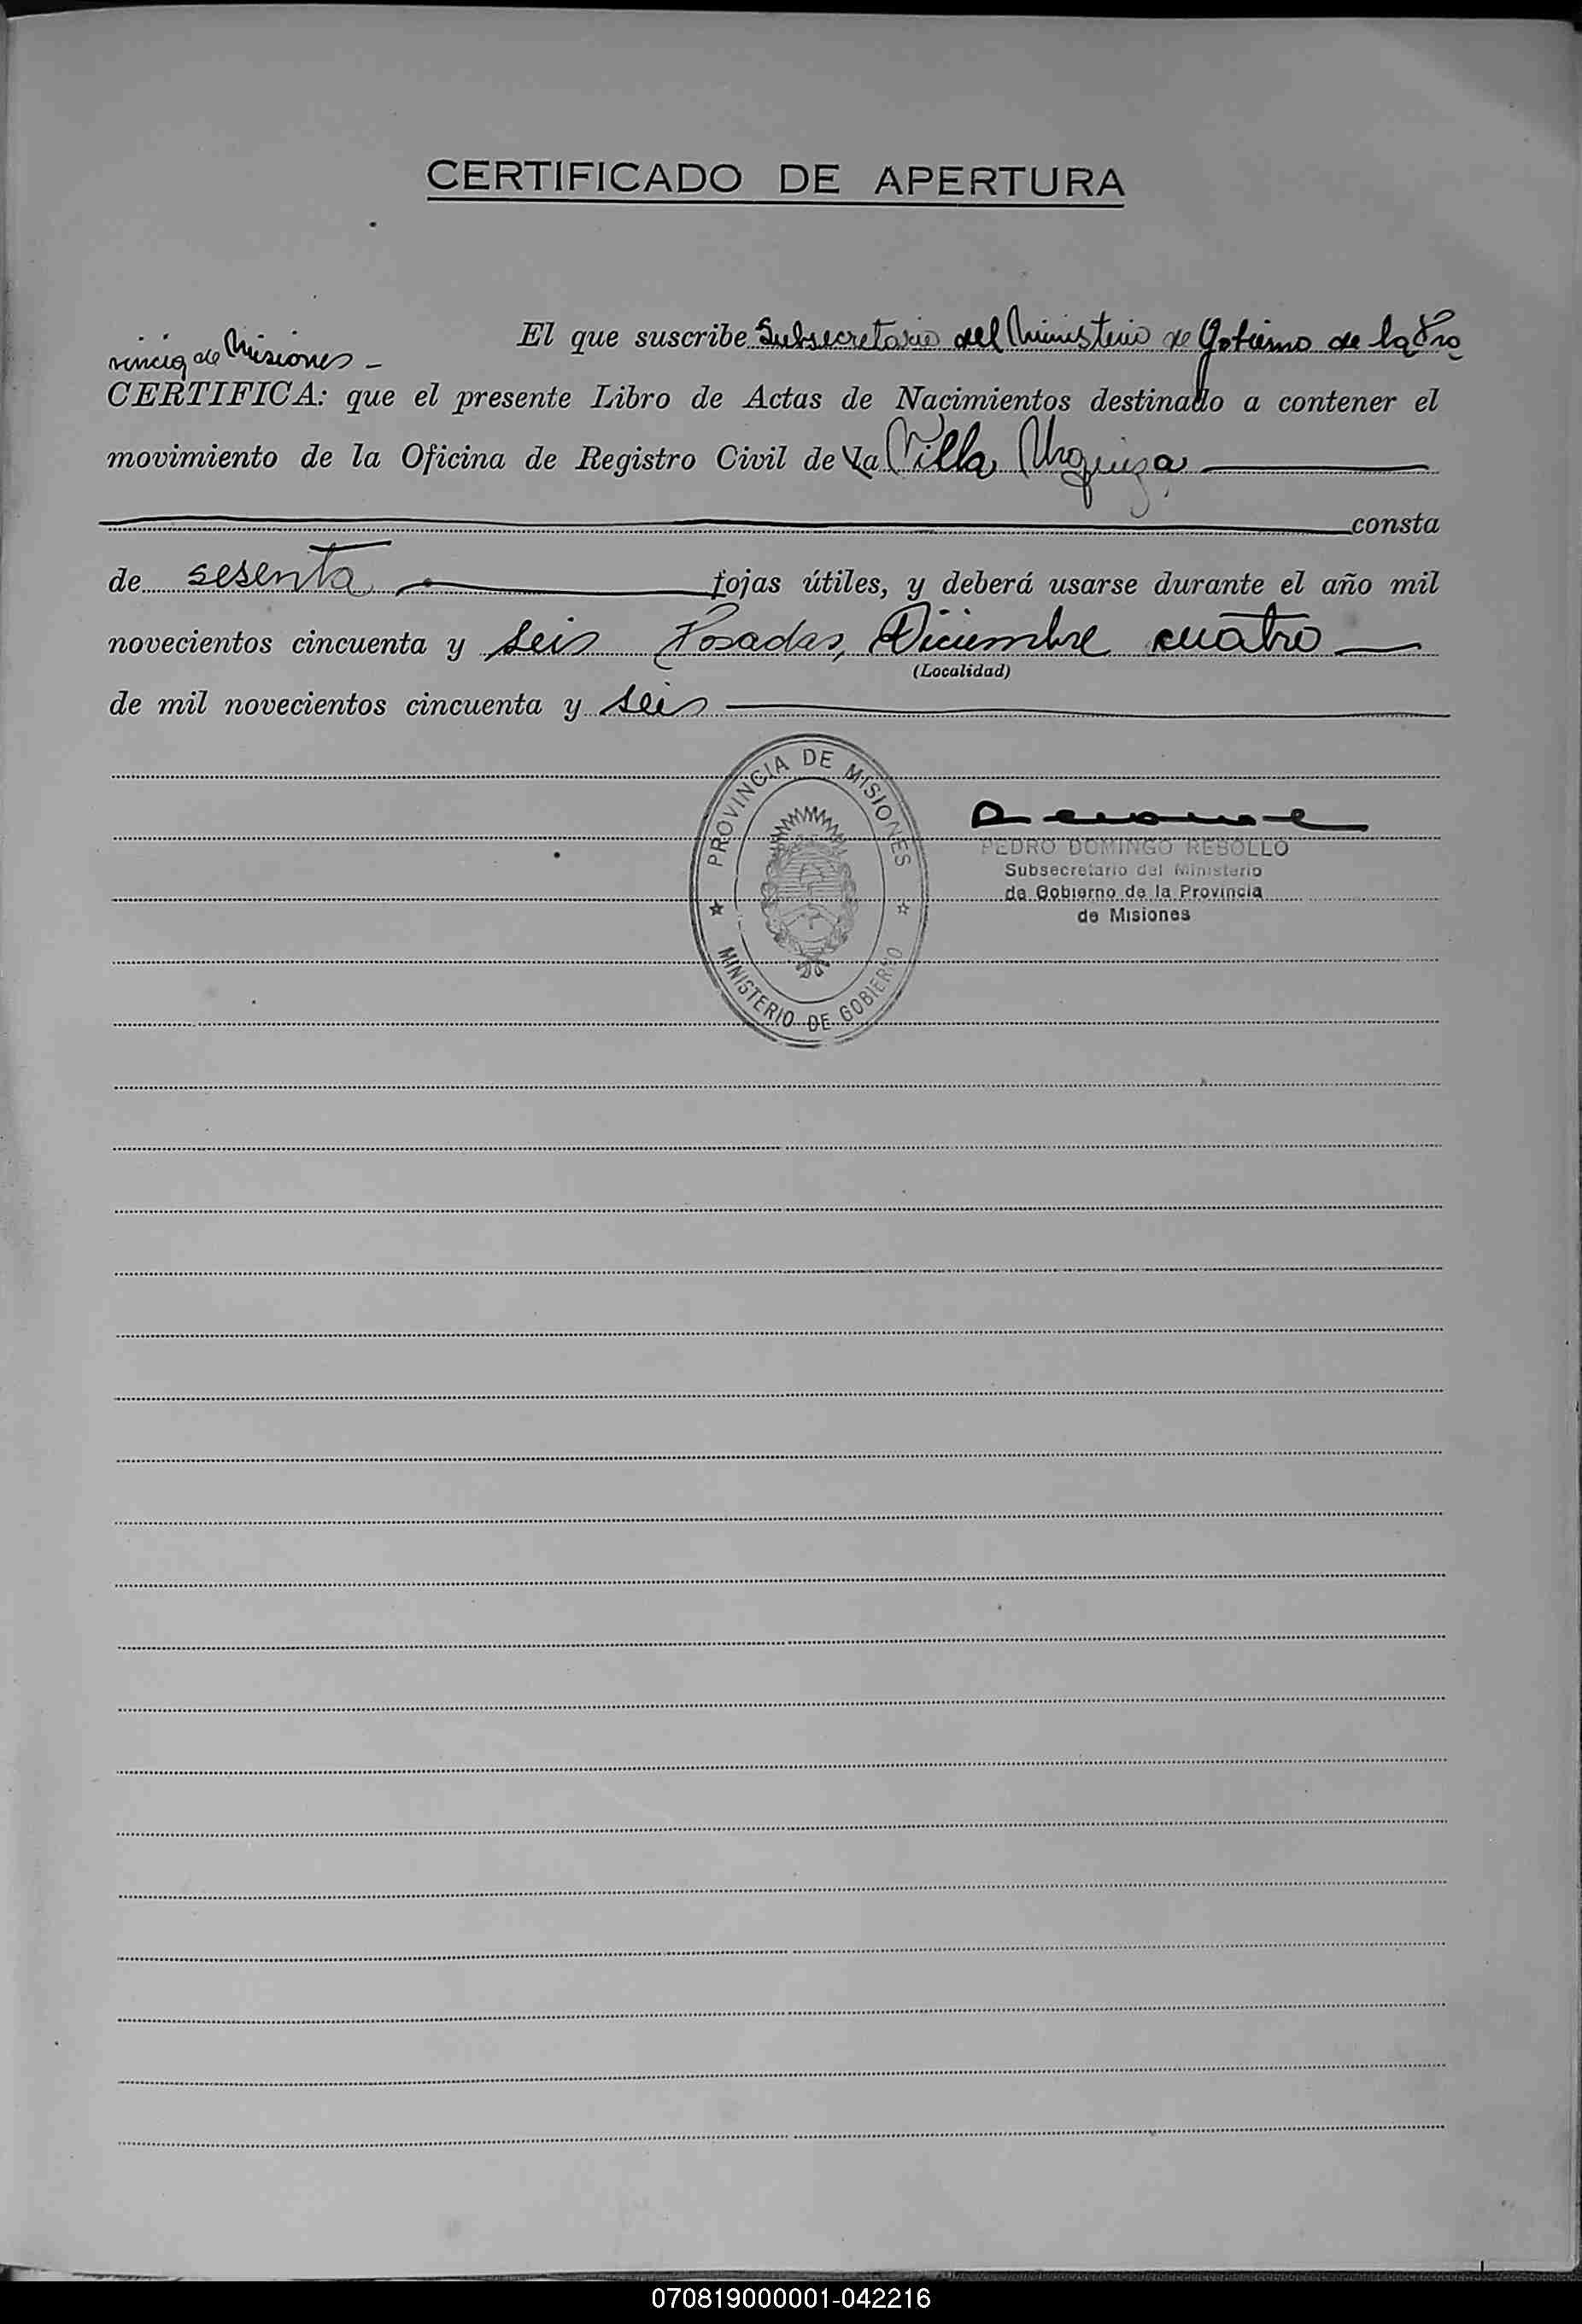 CERTIFICADO DE APERTURA
El que suscribe Subsecretario del Ministerio de Gobierno de la Pro
vincia de Misiones -
CERTIFICA: que el presente Libro de Actas de Nacimientos destinado a contener el
movimiento de la Oficina de Registro Civil de la Villa Urquiza
consta
de sesenta fojas útiles, y deberá usarse durante el año mil
novecientos cincuenta y seis Posadas, Diciembre cuatro
(Localidad)
de mil novecientos cincuenta y seis
PROVINCIA DE MISIONES
MINISTERIO DE GOBIERNO
PEDRO DOMINGO REBOLLO
Subsecretario del Ministerio
de Gobierno de la Provincia
de Misiones
070819000001-042216